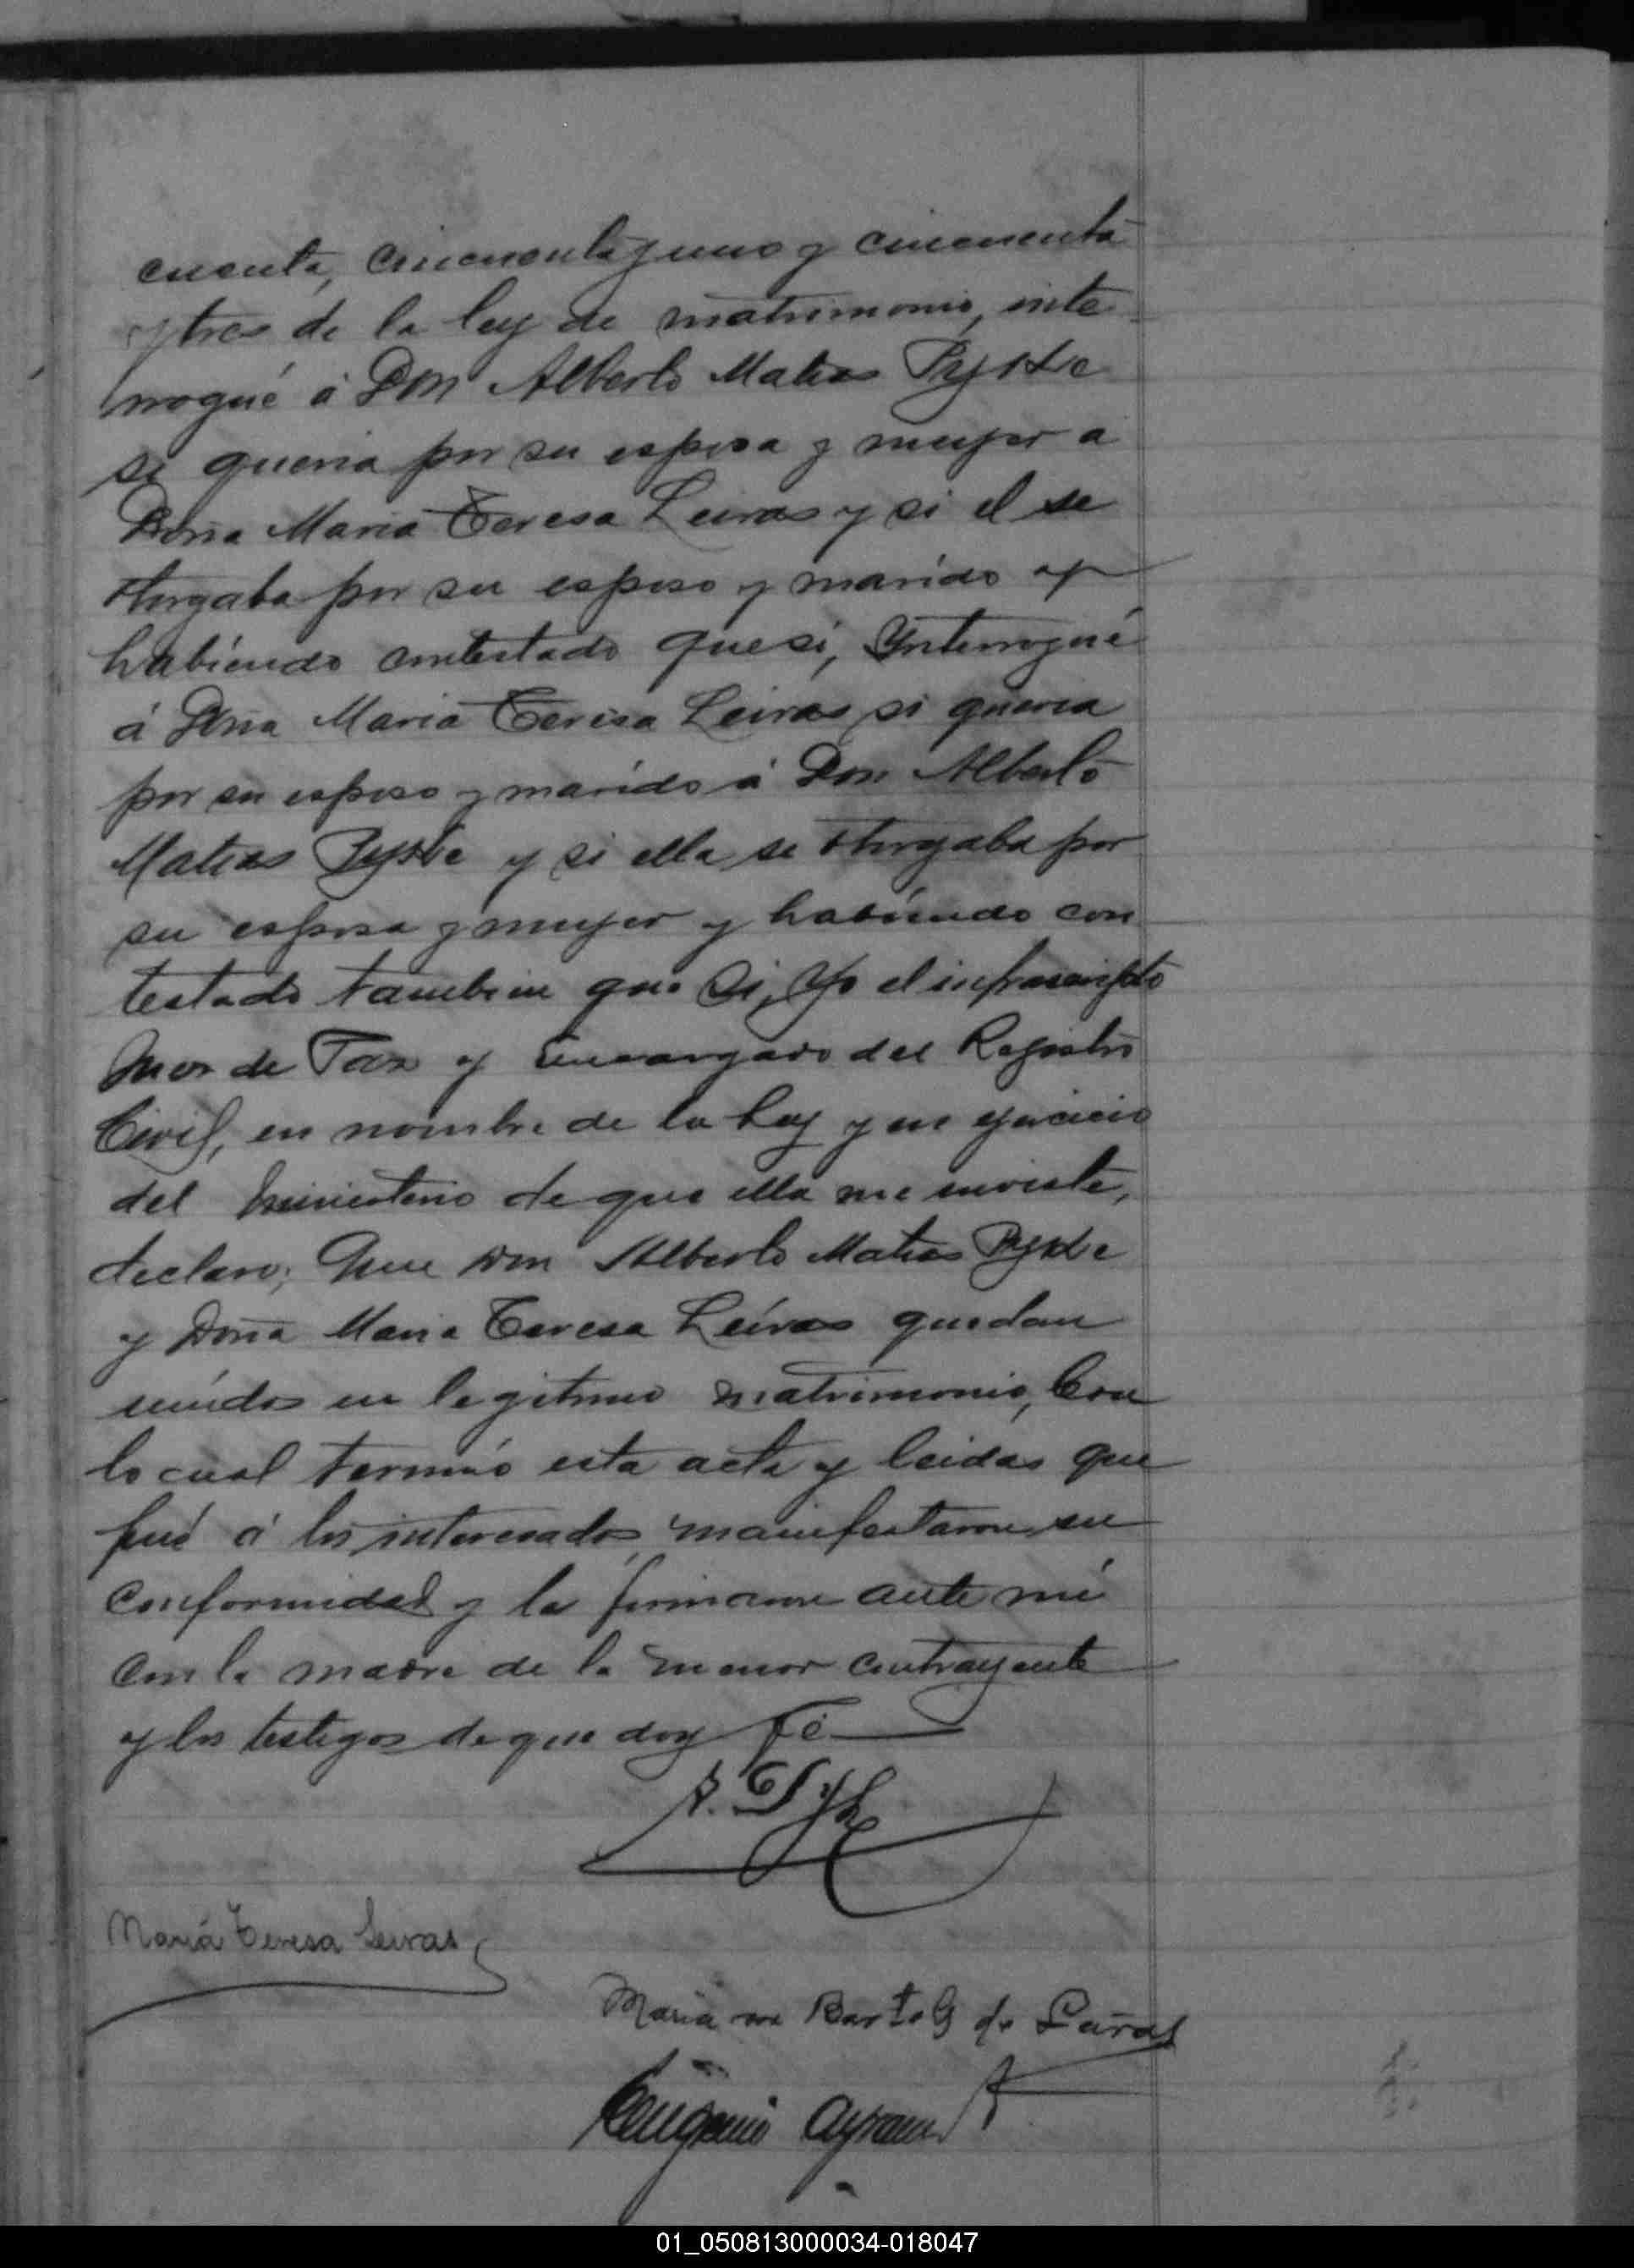 cuenta, cincuenta y uno y cincuenta
y tres de la ley de matrimonio, inte
rrogué á Don Alberto Matias Pyske
si queria por su esposa y mujer a
Doña Maria Teresa Leiras y si el se
otorgaba por su esposo y marido y
habiendo contestado que si, Ynterrogué
á Doña Maria Teresa Leiras si queria
por su esposo y marido á Don Alberto
Matias Pyske y si ella se otorgaba por
su esposa y mujer y habiendo con
testado tambien que Si, Yo el infrascripto
Juez de Paz y Encargado del Registro
Civil, en nombre de la Ley y en ejercicio
del ministerio de que ella me enviste,
declaro; Que Don Alberto Matias Pyske
y Doña Maria Teresa Leiras quedan
unidos en legitimo matrimonio, Con
lo cual terminó esta acta y leidas que
fué á los interesados, manifestaron su
conformidad y la firmaron ante mi
con la madre de la menor contrayente
y los testigos de que doy Fé
A.
María Teresa Leiras
Maria de
Eugenio
01_050813000034-018047